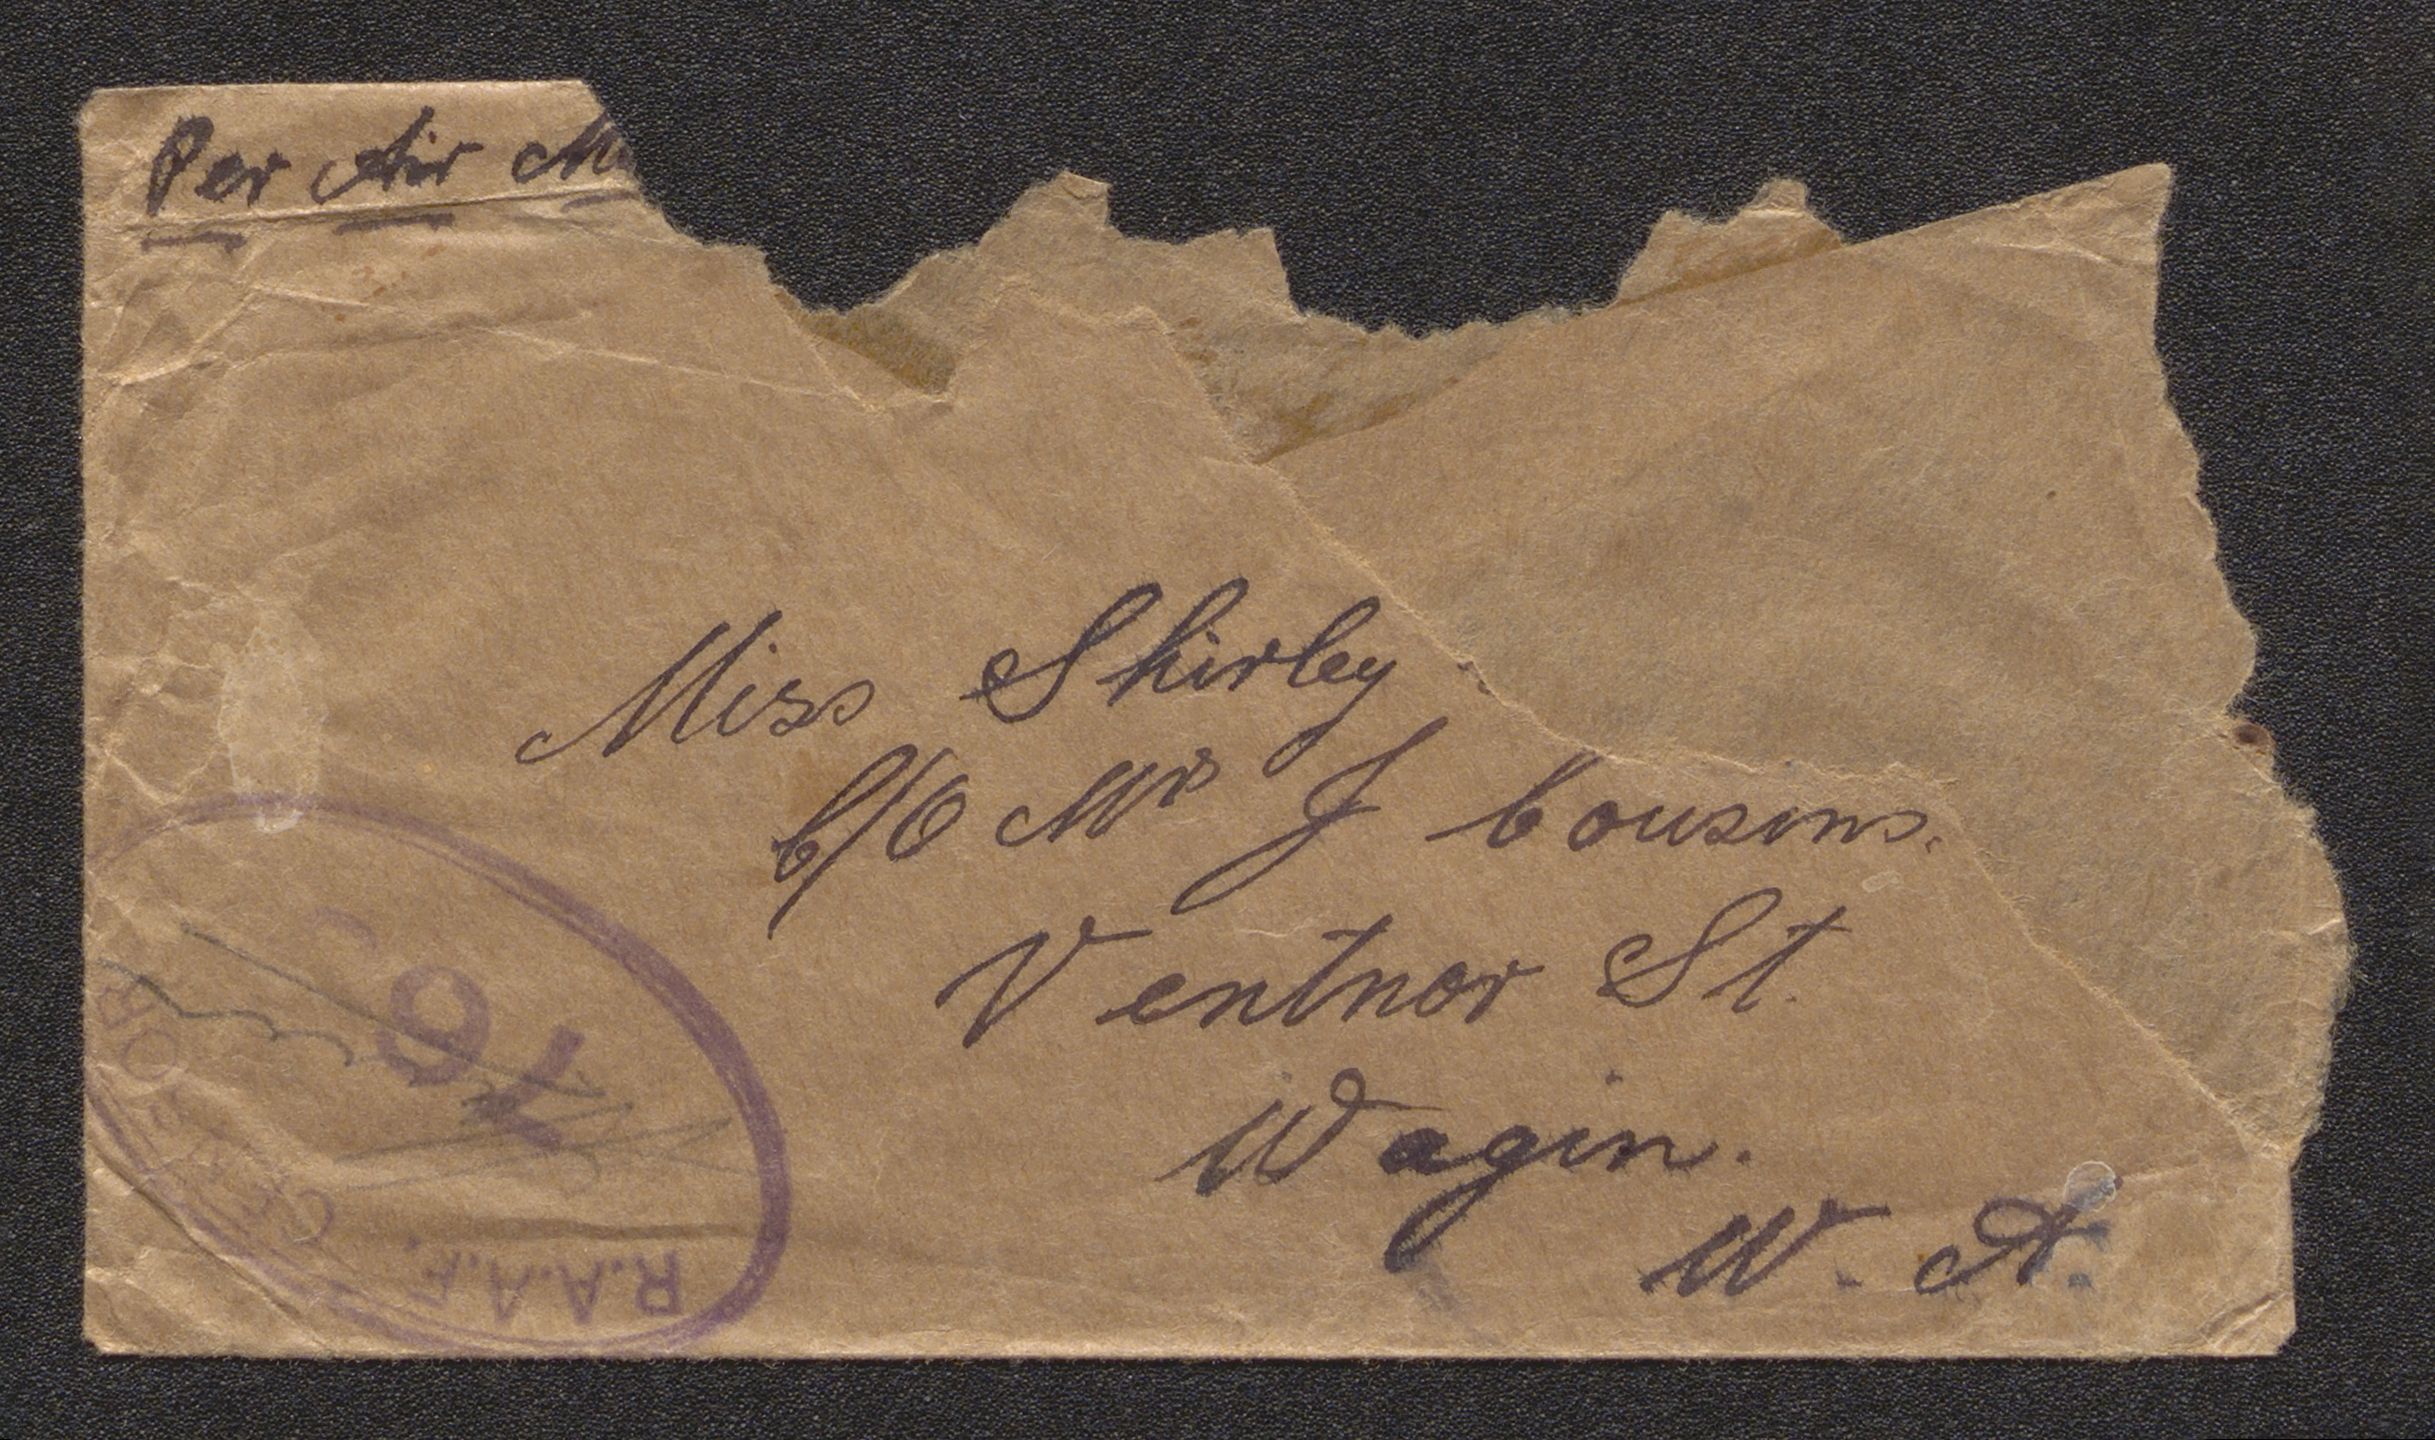 Per Air M
Miss Shirley
C/O Mrs J Cousins.
Ventnor St.
Wagin.
W. A.
R.A.A.F. CENSOR